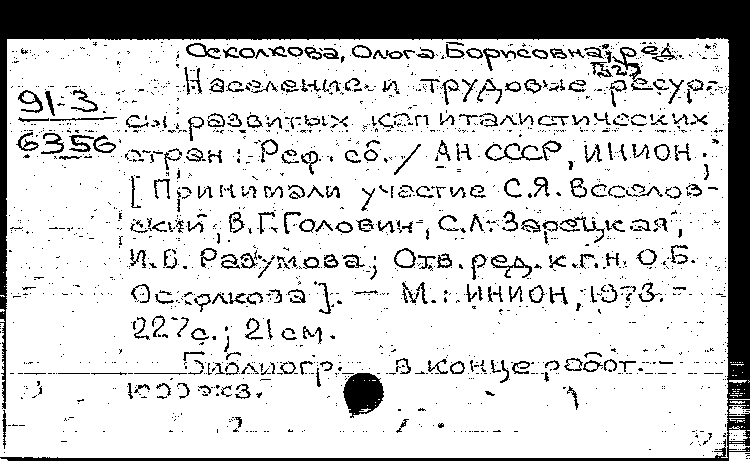 Осколкова, Ольга Борисовна, ред.
Население и трудовые ресур-
91-3
6356
сы развитых капиталистических
стран: Реф. сб. / АН СССР, ИНИОН;
[Принимали участие С.Я. Веселов-
ский, В.Г. Головин, С.Л. Зарецкая,
И.В. Разумова; Отв. ред. к.г.н. О.Б.
Осколкова]. — М.: ИНИОН, 1978. -
227с.; 21см.
Библиогр. в конце работ. -
1000 экз.